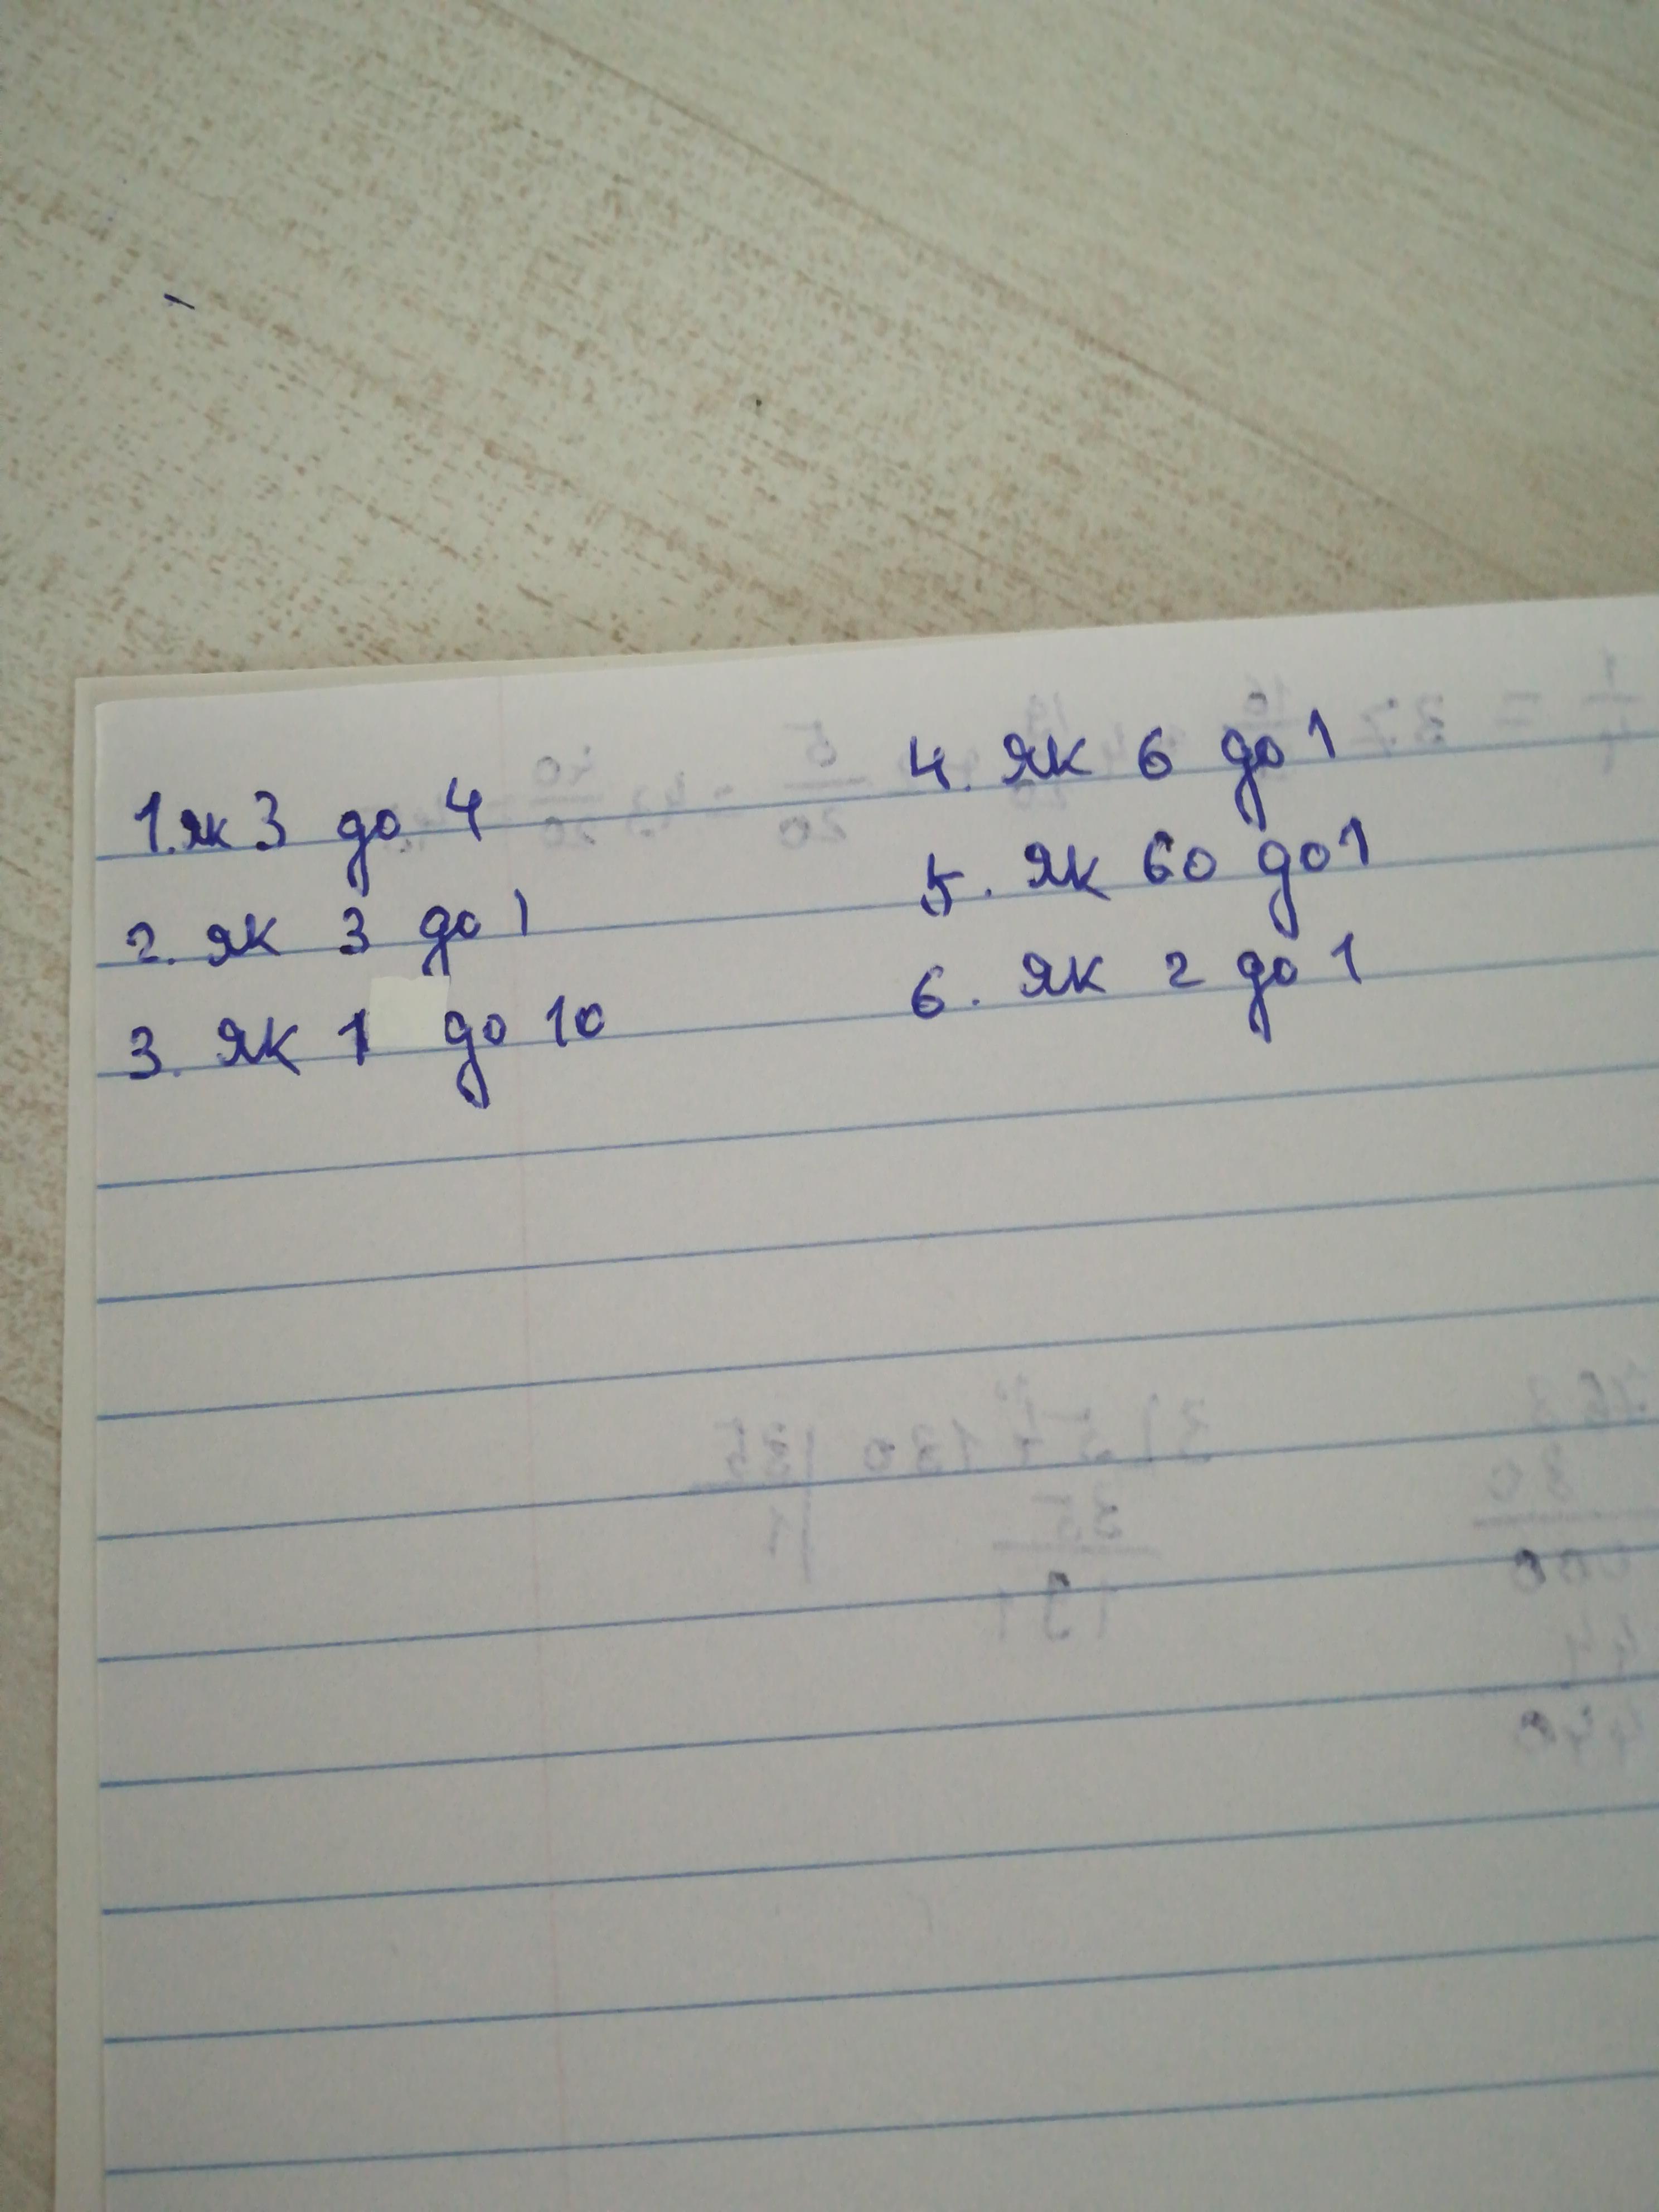 1. як 3 до 4
2. як 3 до 1
3. як 1 до 10
4. як 6 до 1
5. як 60 до 1
6. як 2 до 1